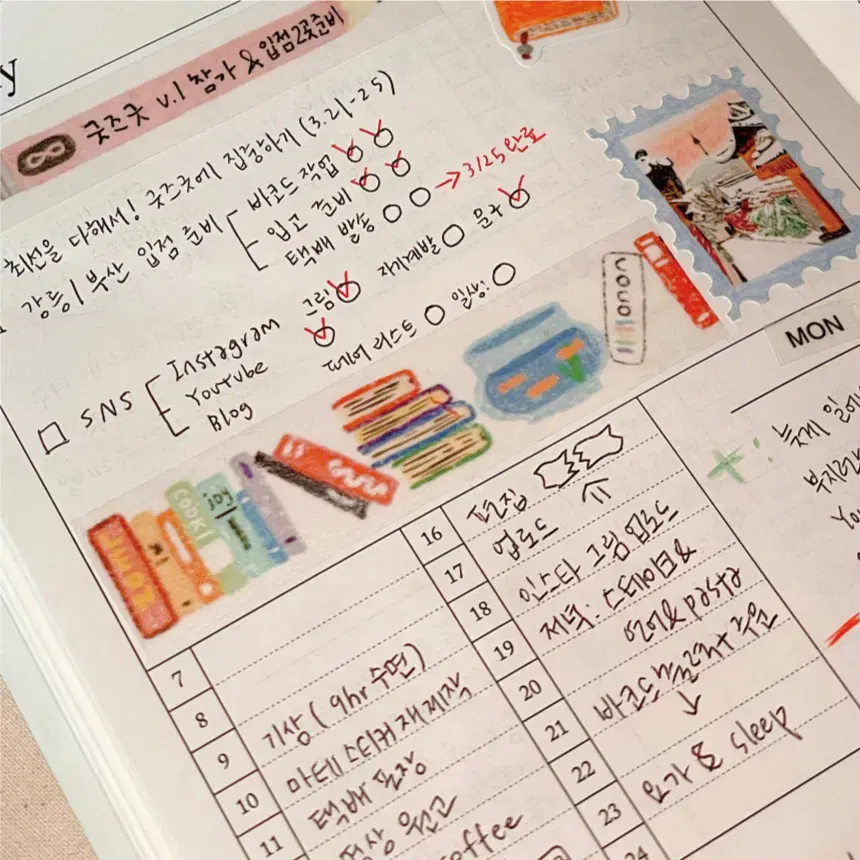 y
굿즈굿 v.1 참가 & 입점2곳준비
최선을 다해서! 굿즈굿에 집중하기 (3.21-25)
강릉/부산 입점 준비
바코드 작업
입고 준비
택배 발송 → 3/25 완료
SNS
Instagram 그림 자기계발 문구
Youtube
Blog 테이 리스트 일상:
COOKI
joy
COCO
MON
늦게 일어
부지런
You
7
8
9 기상 (9hr 수면)
10 마테 스티커 재제작
11 택배 포장
영상 원고
coffee
16 편집
17 업로드
18 인스타 그림 업로드
19 저녁: 스테이크 &
연어 & pasta
20
21 바코드
↓
22
23 요가 & sleep
24